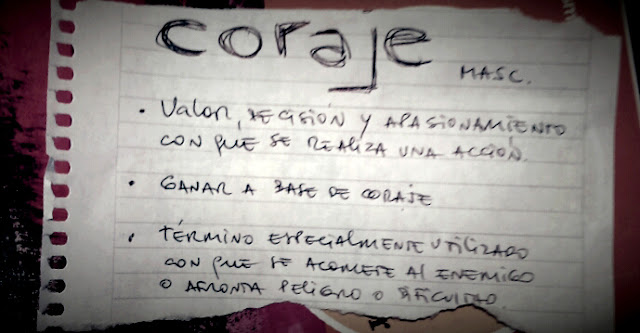 coraje
MASC.
• Valor, DECISIÓN Y APASIONAMIENTO
CON QUE SE REALIZA UNA ACCIÓN.
• GANAR A BASE DE CORAJE
• TÉRMINO ESPECIALMENTE UTILIZADO
CON QUE SE ACOMETE Al ENEMIGO
O AFRONTA PELIGRO O DIFICULTAD.